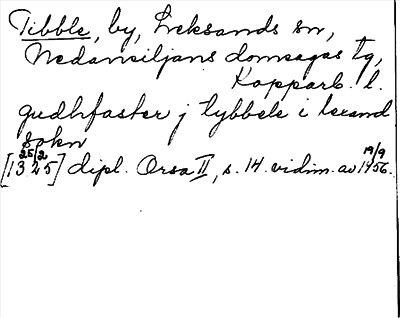 Tibble, by, Leksands sn,
Nedansiljans domsagas tg,
Kopparb. l.
gudhfaster j tybbele i lexand
sokn
[1325 25/2] dipl. Orsa II, s. 14. vidim. av 1456 19/9.